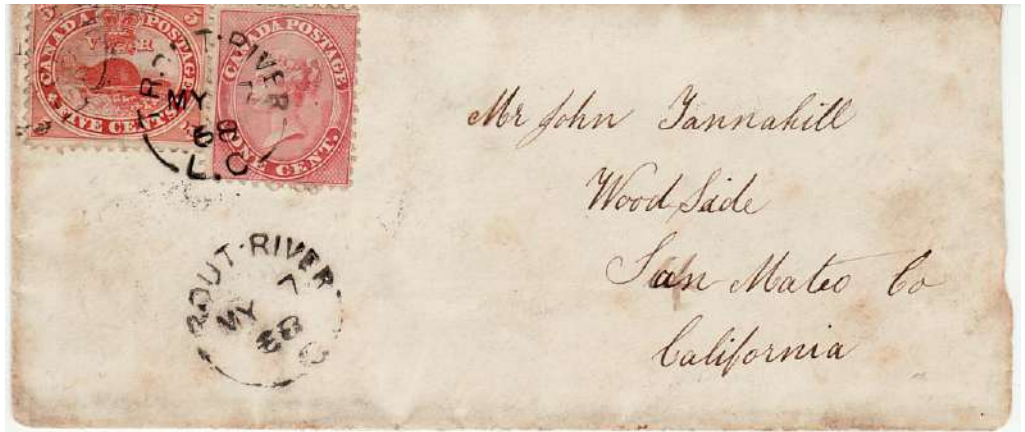 CANADA POSTAGE
5
V R
FIVE CENTS
CANADA POSTAGE
ONE CENT.
RIVER
MY 7
68
L.C
ROUT-RIVER
MY 7
68
C
Mr John Tannahill
Wood Side
San Mateo Co
California